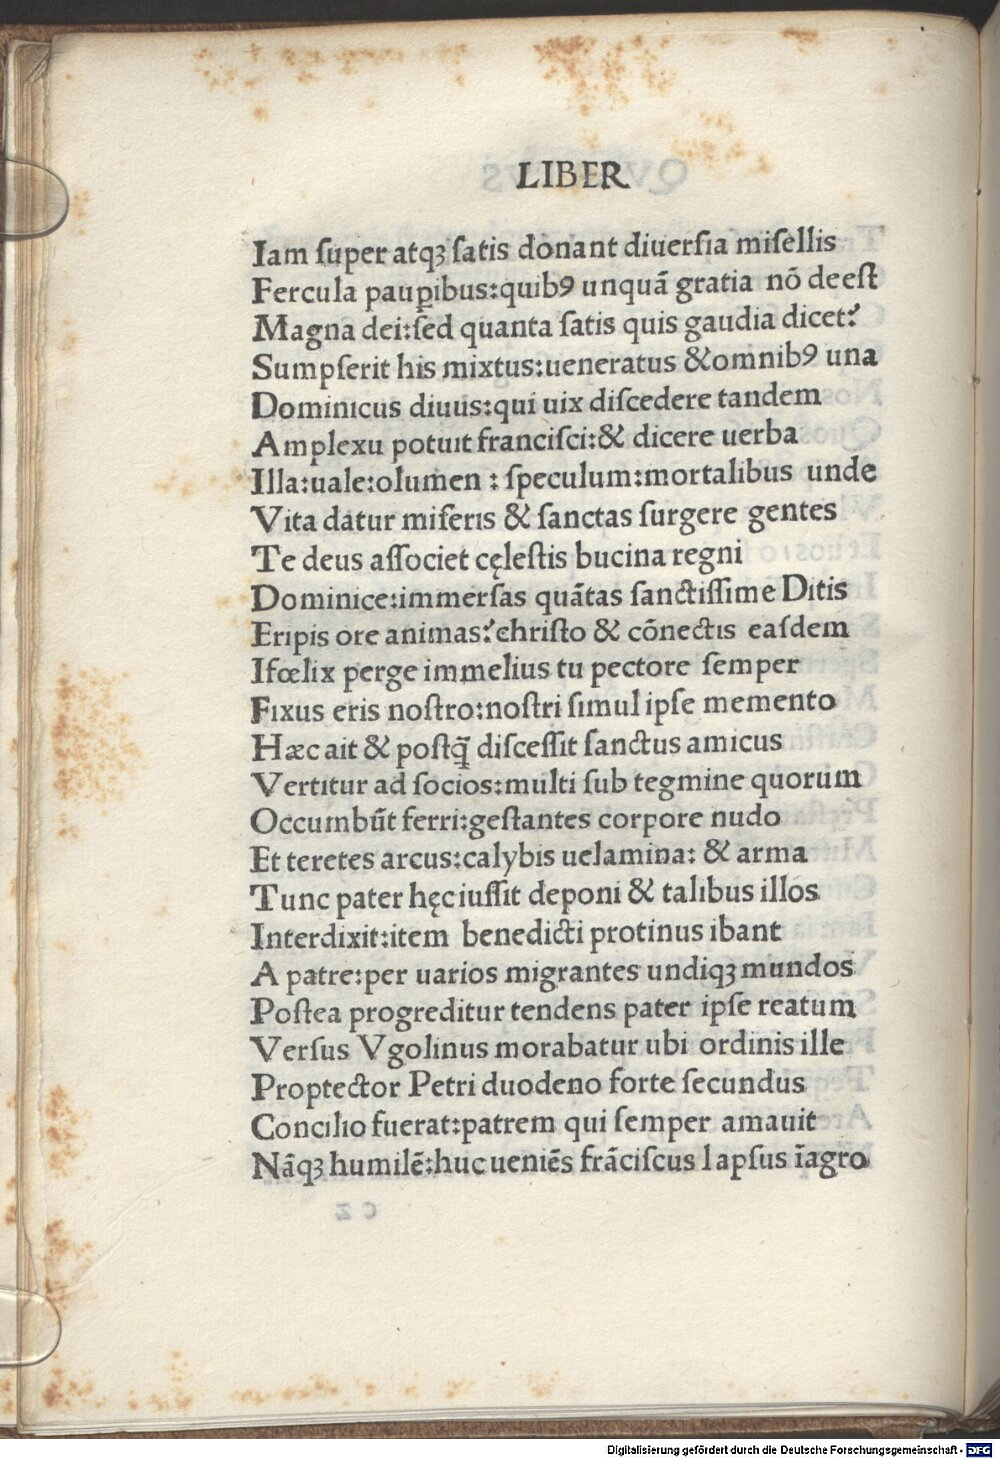 LIBER
Iam ſuper atqꝫ ſatis donant diuerſia miſellis
Fercula pauꝑibus:quibꝰ unquā gratia nō deeſt
Magna dei:ſed quanta ſatis quis gaudia dicet?
Sumpſerit his mixtus:ueneratus &omnibꝰ una
Dominicus diuus:qui uix diſcedere tandem
Amplexu potuit franciſci:& dicere uerba
Illa:uale:olumen : ſpeculum:mortalibus unde
Vita datur miſeris & ſanctas ſurgere gentes
Te deus aſſociet cęleſtis bucina regni
Dominice:immerſas quātas ſanctiſſime Ditis
Eripis ore animas?chriſto & cōnectis eaſdem
Ifœlix perge immelius tu pectore ſemper
Fixus eris noſtro:noſtri ſimul ipſe memento
Hæc ait & poſtq̄ diſceſſit ſanctus amicus
Vertitur ad ſocios:multi ſub tegmine quorum
Occumbūt ferri:geſtantes corpore nudo
Et teretes arcus:calybis uelamina: & arma
Tunc pater hęc iuſſit deponi & talibus illos
Interdixit:item benedicti protinus ibant
A patre:per uarios migrantes undiqꝫ mundos
Poſtea progreditur tendens pater ipſe reatum
Verſus Vgolinus morabatur ubi ordinis ille
Proptector Petri duodeno forte ſecundus
Concilio fuerat:patrem qui ſemper amauit
Nāqꝫ humilē:huc ueniēs frāciſcus lapſus īagro
Digitalisierung gefördert durch die Deutsche Forschungsgemeinschaft - DFG